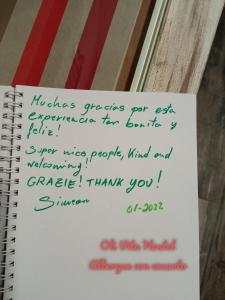 Muchas gracias por esta
experiencia tan bonita y
feliz!
Super nice people, Kind and
welcoming!!
GRAZIE! THANK YOU!
Simeon
01-2022
Albergue con encanto